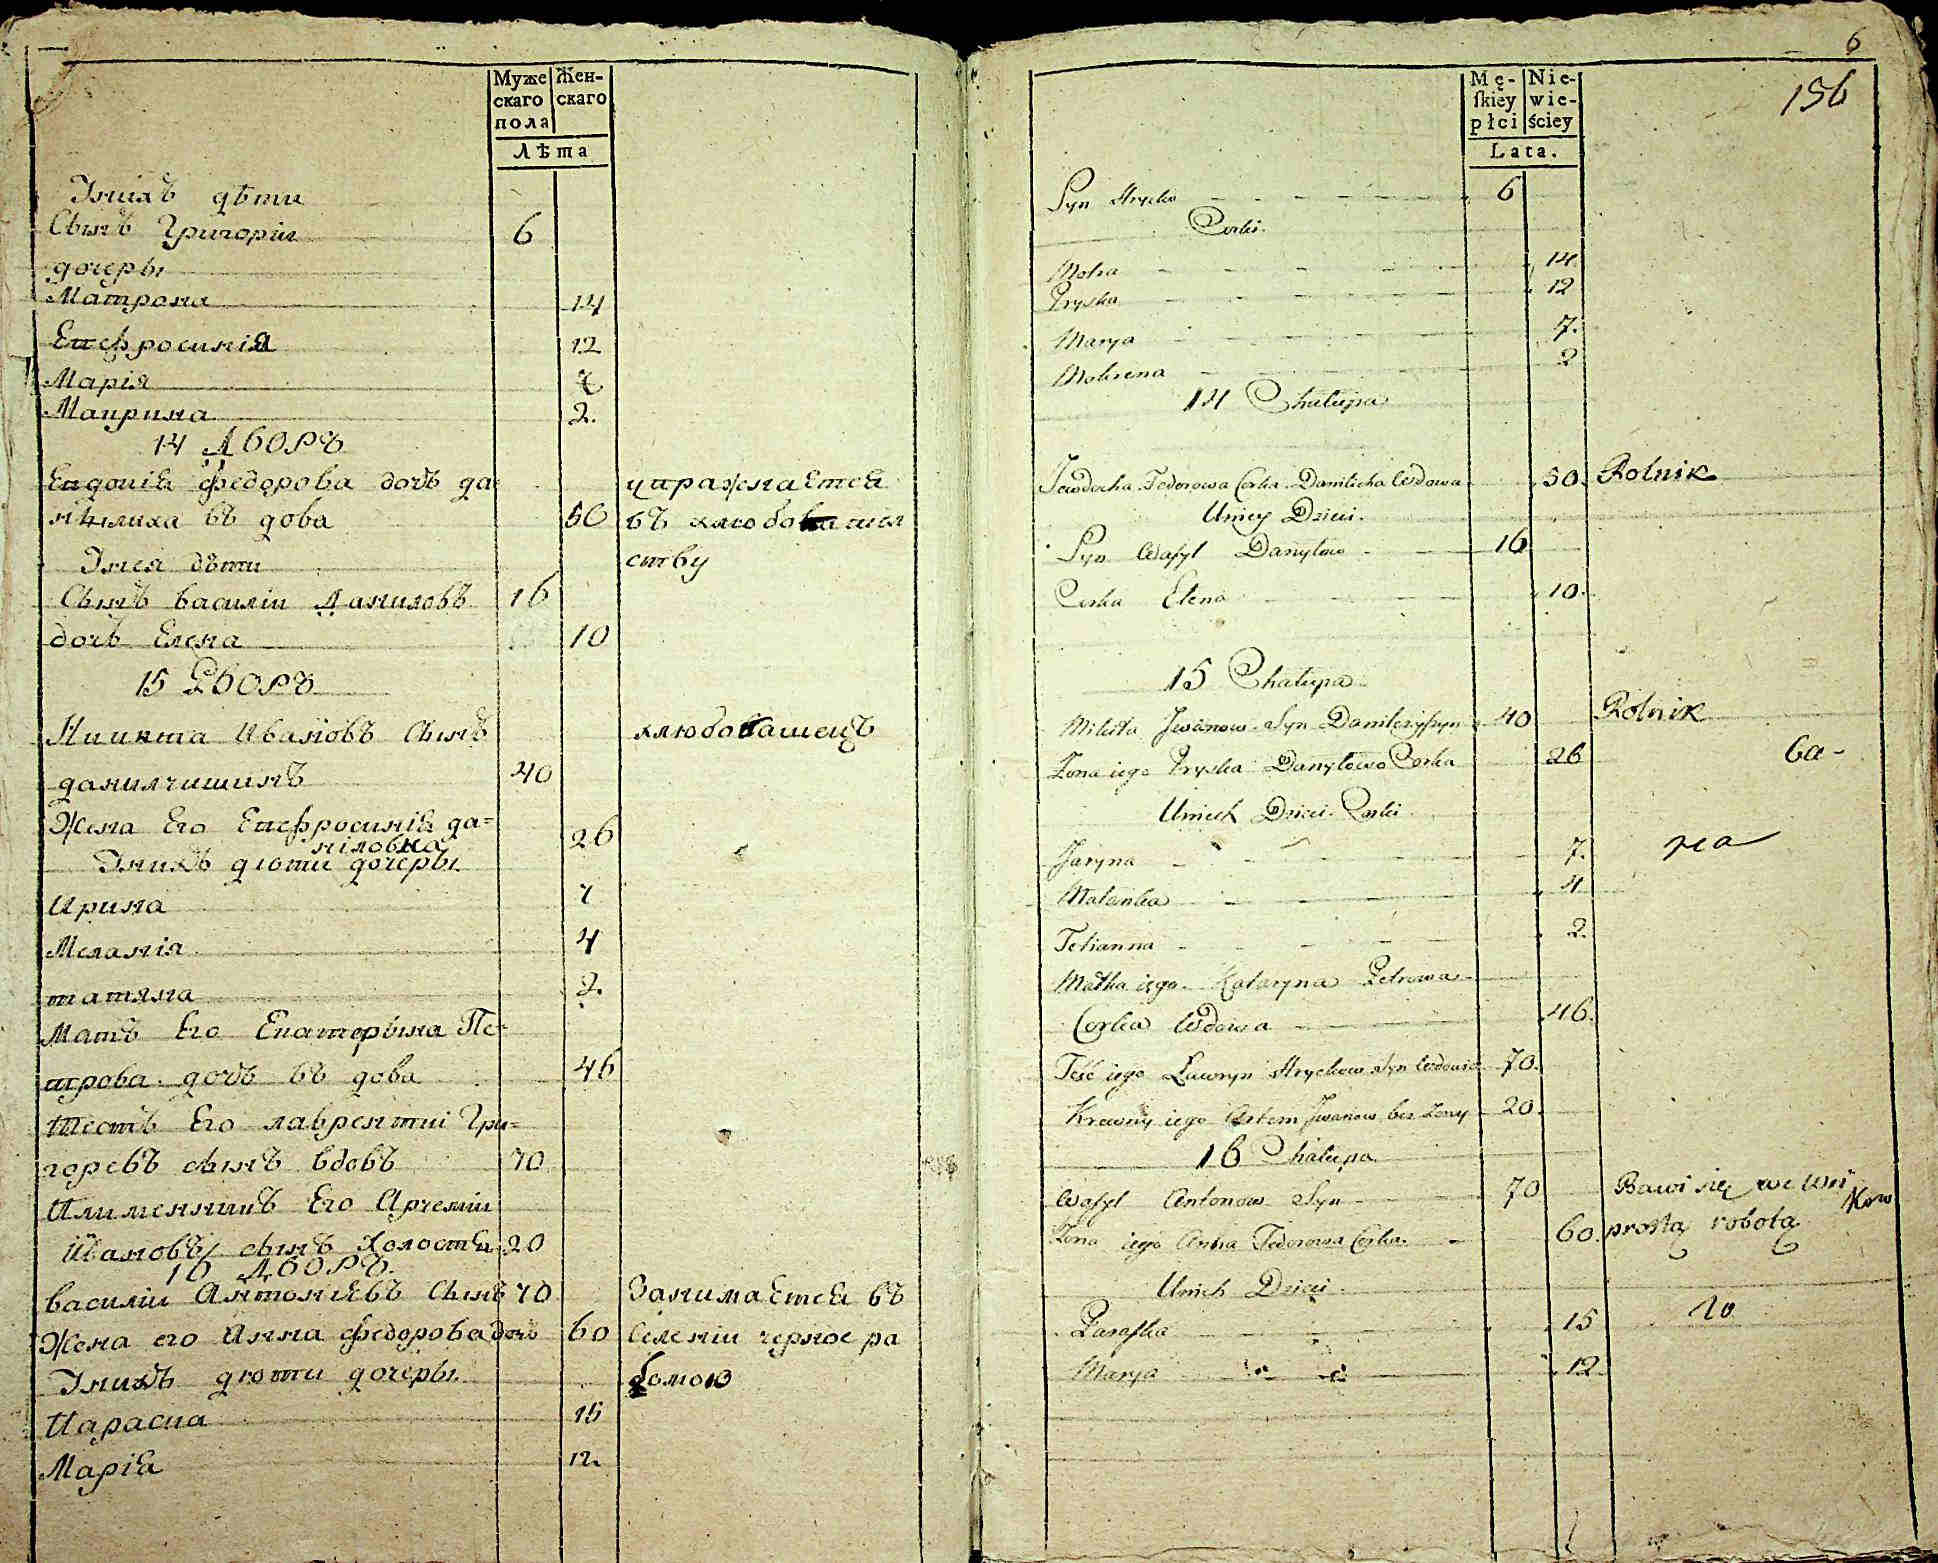 Муже
скаго
пола
Жен-
скаго
Лѣта
Унихъ дѣти
Сынъ Григорій 6
дочеры
Матрона 14
Евфросинія 12
Марія 7
Маврина 2.
14 Дворъ
Евдокія Федорова дочь да=
нилиха вдова 50
упражняется
въ хлѣбопаше
ству
Унея дѣти
Сынъ Василій Даниловъ 16
дочь Елена 10
15 Дворъ
Никита Ивановъ Сынъ
данилчишинъ 40
хлѣбопашецъ
Жена Его Евфросинія да=
ниловна 26
Унихъ дѣти дочеры
Ирина 7
Меланія 4
татяна 2.
Мать Его Екатерына Пе-
трова дочь вдова 46
тесть Его лаврентій Гри=
горевъ сынъ вдовъ 70
Племенникъ Его Артемій
Ивановъ сынъ холостъ 20
16 Дворъ.
василій Антоніевъ Сынъ 70
Занимается въ
Жена его Анна Федорова дочь 60
Селеніи черное ра
Унихъ дѣти дочеры
ботою
Параска 15
Марія 12
6
156
Mę-
ſkiey
płci
Nie-
wie-
ściey
Lata.
Syn Hrycko 6
Corki.
Motra 14
Pryska 12
Marya 7.
Mokrena 2
14 Chałupa
Jewdocha Fedorowa Corka Danilicha Wdowa 50. Rolnik
Uniey Dzieci.
Syn Wasyl Danyłow 16
Corka Elena 10.
15 Chałupa
Mikita Jwanow Syn Danilczyszyn 40 Rolnik
Zona iego Pryska Danyłowa Corka 26
ба-
Unich Dzieci Corki
Jaryna 7.
Małanka 4
Tetianna 2.
Matka iego Kataryna Petrowa
Corka Wdowa 46.
Teść iego Ławryn Hryckow Syn Wdowiec 70.
Krewny iego Artem Jwanow bez Zony 20.
16 Chałupa
Wasyl Antonow Syn 70 Bawi się we wsi
Zona iego Anna Fedorowa Corka 60. prostą robotą
Unich Dzieci
Paraska 15
Marya 12